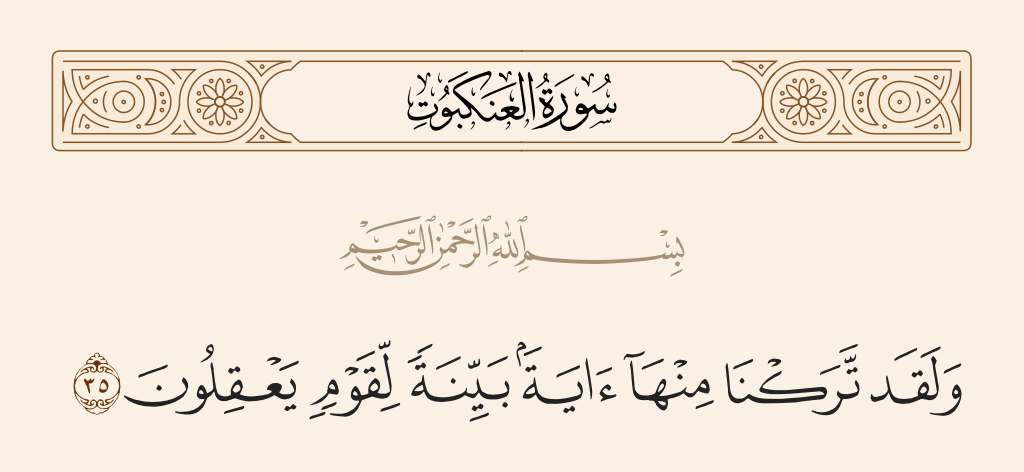 سُورَةُ العَنكَبُوتِ
بِسْمِ ٱللَّهِ ٱلرَّحْمَٰنِ ٱلرَّحِيمِ
وَلَقَد تَّرَكْنَا مِنْهَآ ءَايَةَۢ بَيِّنَةً لِّقَوْمٍ يَعْقِلُونَ ٣٥